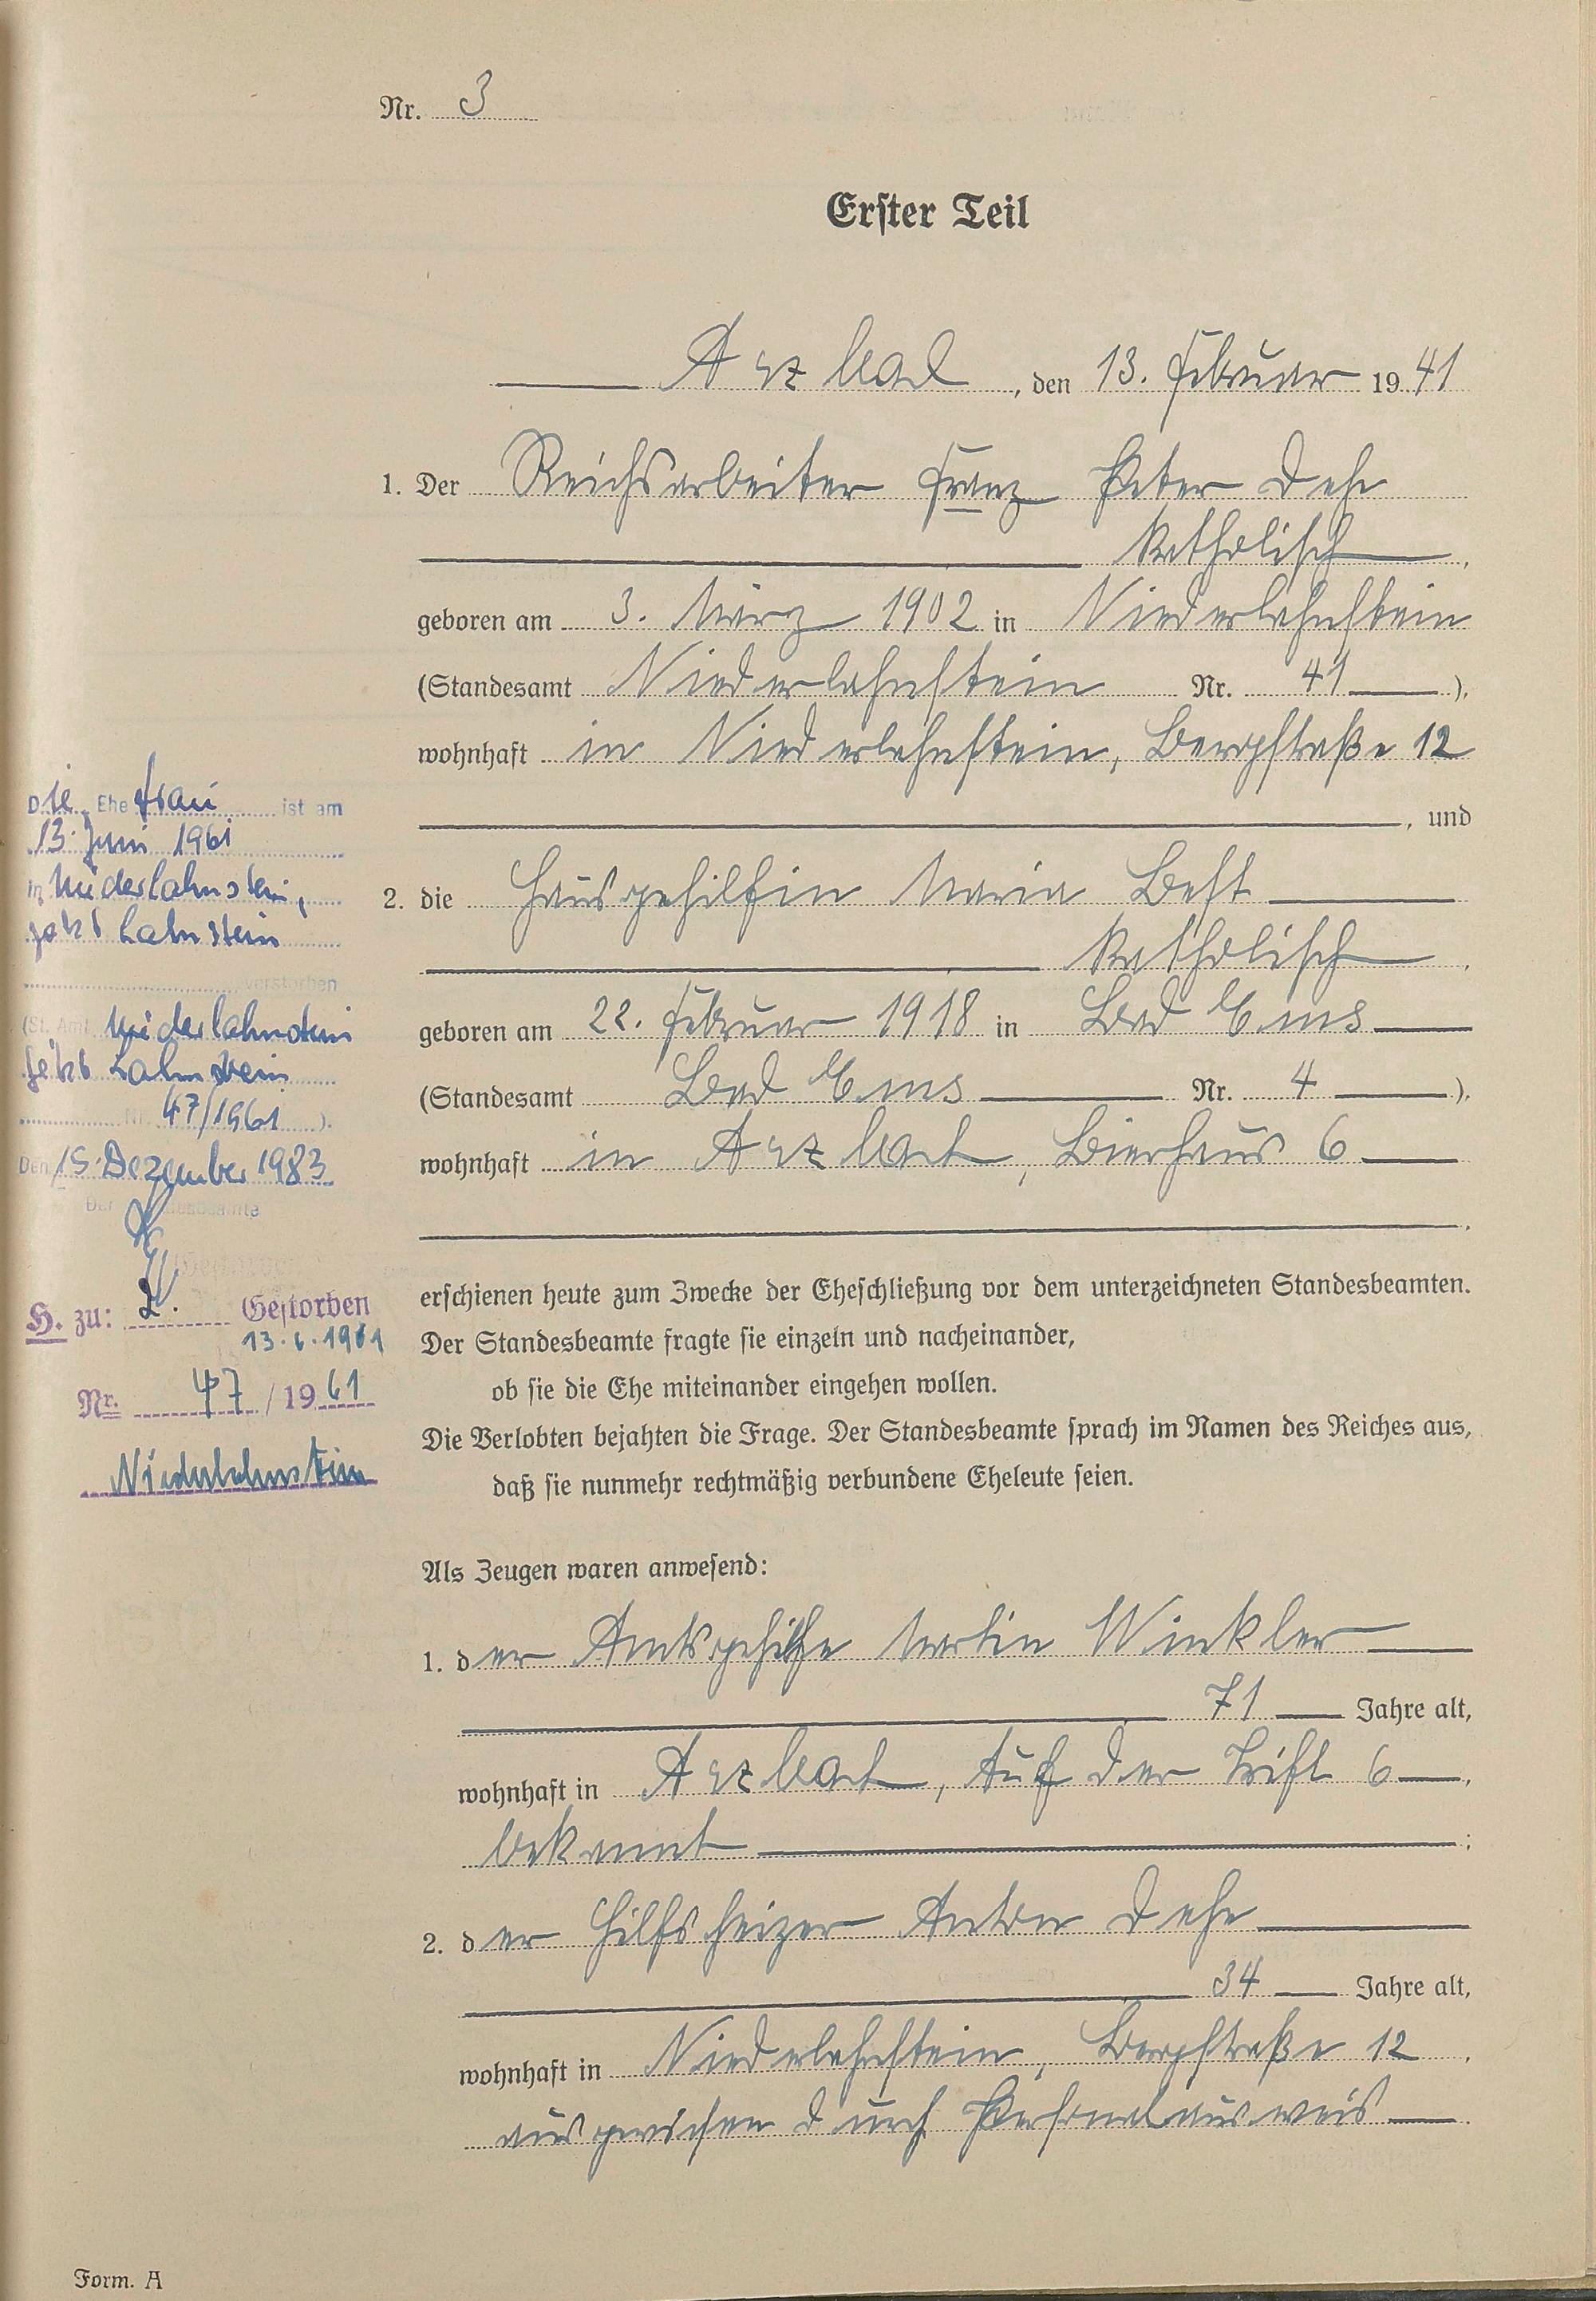 Nr. 3
Erster Teil
Arzbach, den 13. Februar 1941
1. Der Reichsarbeiter Franz Peter Dehe
katholisch,
geboren am 3. März 1902 in Niederlahnstein
(Standesamt Niederlahnstein Nr. 41),
wohnhaft in Niederlahnstein, Bergstraße 12
, und
2. die Hausgehilfin Maria Best
katholisch,
geboren am 22. Februar 1918 in Bad Ems
(Standesamt Bad Ems Nr. 4),
wohnhaft in Arzbach, Bierhaus 6
.
erschienen heute zum Zwecke der Eheschließung vor dem unterzeichneten Standesbeamten.
Der Standesbeamte fragte sie einzeln und nacheinander,
ob sie die Ehe miteinander eingehen wollen.
Die Verlobten bejahten die Frage. Der Standesbeamte sprach im Namen des Reiches aus,
daß sie nunmehr rechtmäßig verbundene Eheleute seien.
Als Zeugen waren anwesend:
1. der Amtsgehilfe Martin Winkler
71 Jahre alt,
wohnhaft in Arzbach, Auf der Trift 6,
bekannt;
2. der Hilfsheizer Anton Dehe
34 Jahre alt,
wohnhaft in Niederlahnstein, Bergstraße 12.
ausgewiesen durch Personalausweis.
Die Ehefrau ist am
13. Juni 1961
in Niederlahnstein,
jetzt Lahnstein
verstorben
(St. Amt Niederlahnstein
jetzt Lahnstein
Nr. 47/1961).
Den 15. Dezember 1983
Der Standesbeamte
H. zu: 2. Gestorben
13.6.1961
Nr. 47/1961
Niederlahnstein
Form. A